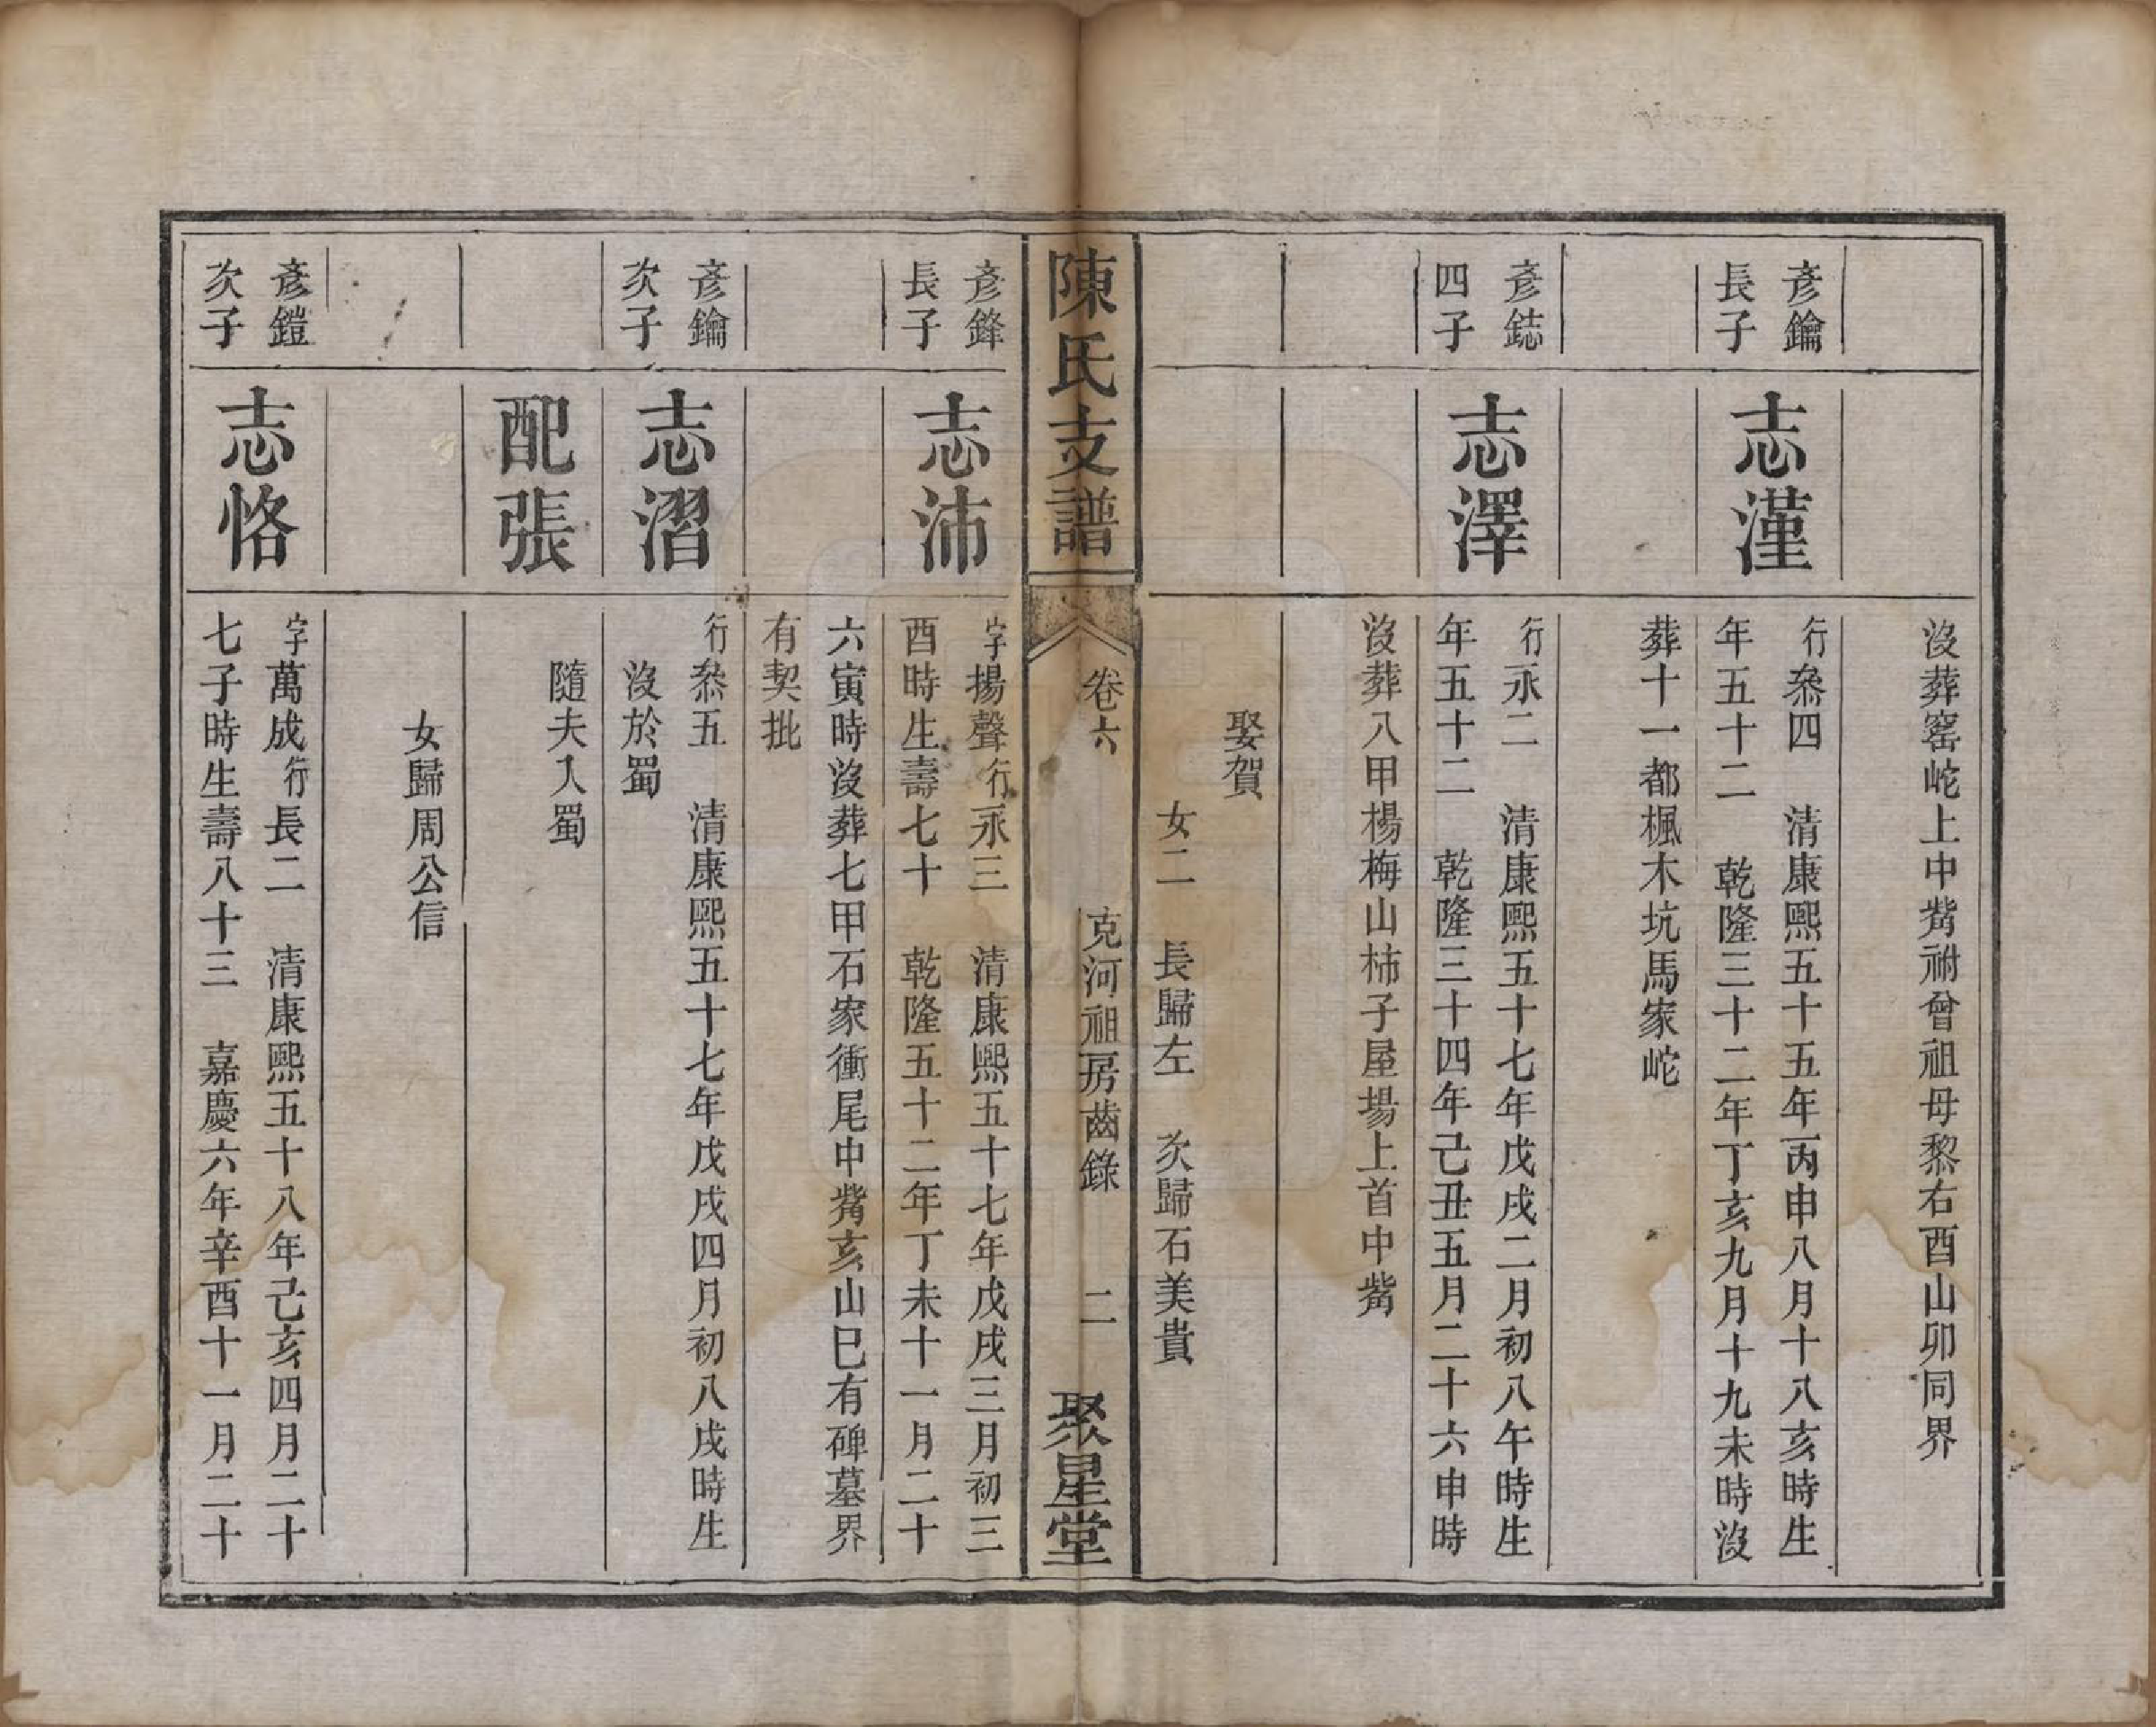 沒葬窰𡶴上中嘴祔曾祖母黎右酉山卯同界
彥鑰
長子
志漌
行叅四　清康熙五十五年丙申八月十八亥時生
年五十二　乾隆三十二年丁亥九月十九未時沒
葬十一都楓木坑馬家𡶴
彥鋕
四子
志澤
行永二　清康熙五十七年戊戌二月初八午時生
年五十二　乾隆三十四年己丑五月二十六申時
沒葬八甲楊梅山柿子屋場上首中嘴
娶賀
女二　長歸左　次歸石美貴
陳氏支譜
卷六
克河祖房齒錄
二
聚星堂
彥鋒
長子
志沛
字揚聲行永三　清康熙五十七年戊戌三月初三
酉時生壽七十　乾隆五十二年丁未十一月二十
六寅時沒葬七甲石家衝尾中嘴亥山巳有碑墓界
有契批
彥鑰
次子
志漝
行叅五　清康熙五十七年戊戌四月初八戌時生
沒於蜀
配張
隨夫入蜀
女歸周公信
彥鎧
次子
志恪
字萬成行長二　清康熙五十八年己亥四月二十
七子時生壽八十三　嘉慶六年辛酉十一月二十